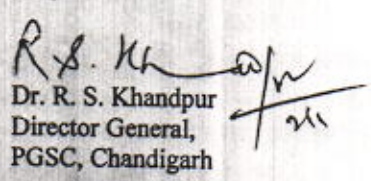 R. S. Kh
Dr. R. S. Khandpur
Director General,
PGSC, Chandigarh